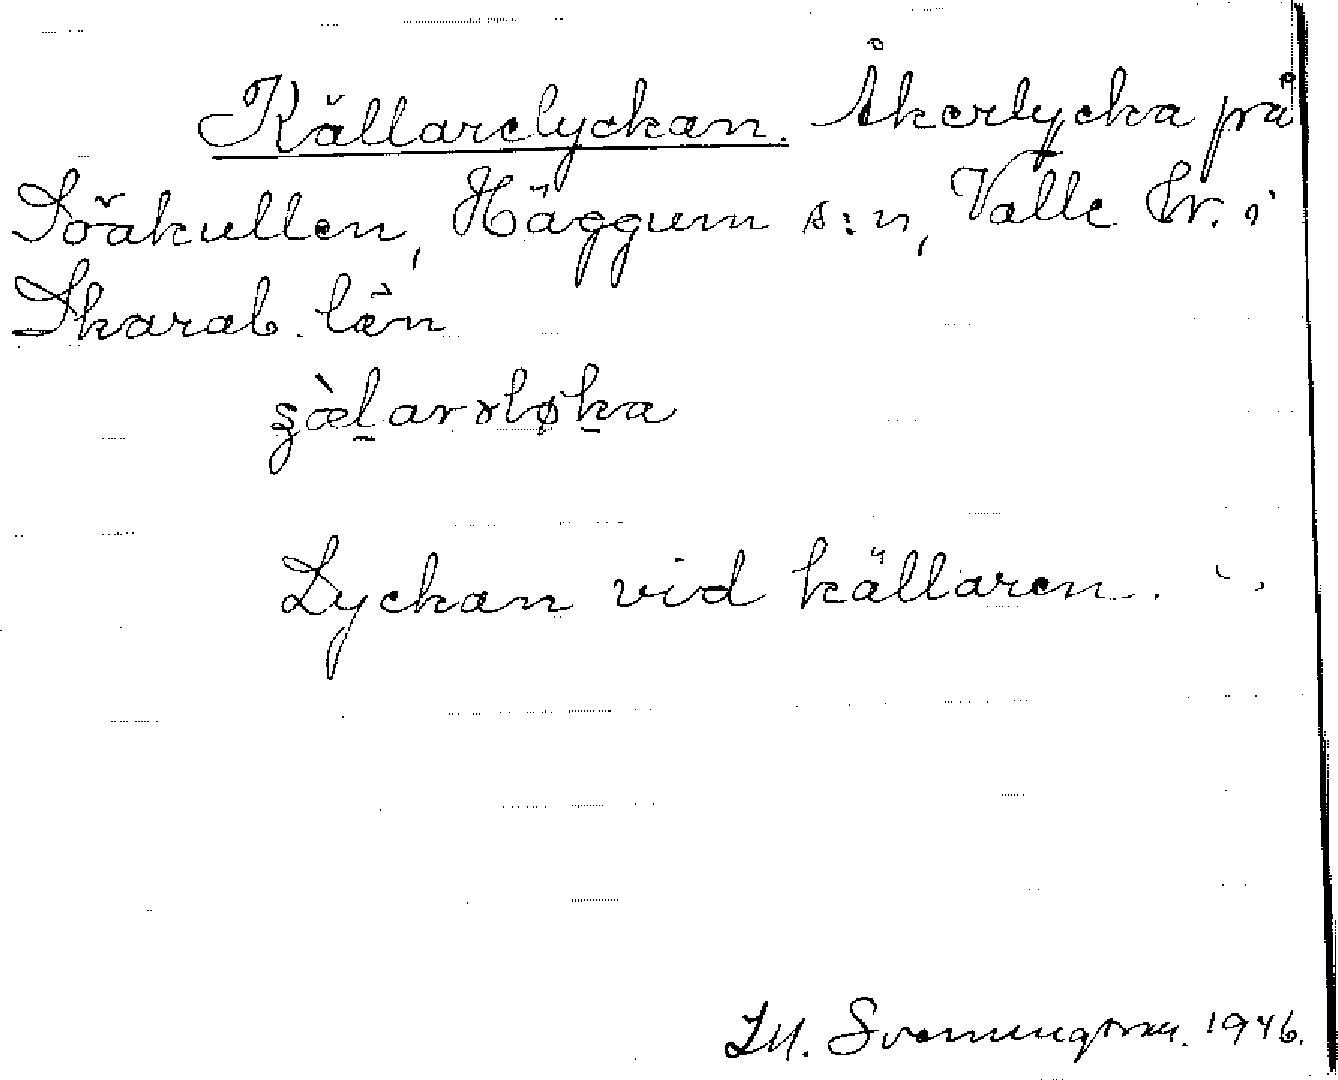 Källarelyckan. Åkerlycka på
Häggum s:n, Valle hr. i
Skarab. län
Lyckan vid källaren.
Svenningsson. 1946.